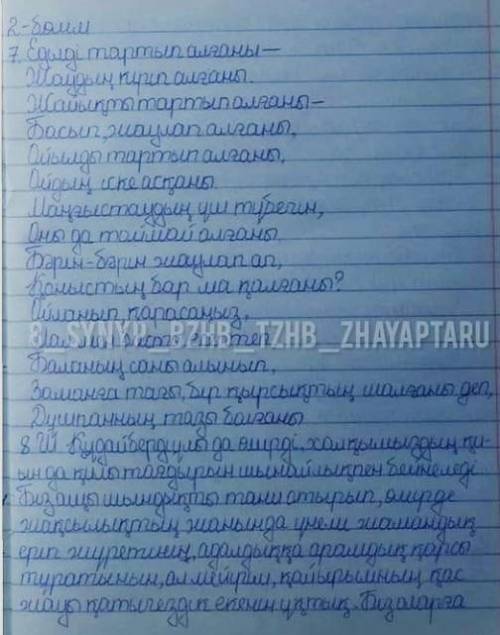 2-бөлім
7. Еділді тартып алғаны—
Жаудың кіріп алғаны.
Жайықты тартып алғаны—
Басып, жаулап алғаны,
Ойылды тартып алғаны,
Ойдың іске асқаны
Маңғыстаудың үш түбегін,
Оны да таймай алғаны.
Бәрін-бәрін жаулап ап,
Қоныстың бар ма қалғаны?
Айланып қарасаңыз,
8_SYNYP_BZHB_TZHB_ZHAYAPTARU
Мал мен
Баланың саны алынып,
Заманға тағы, бір қырсықтың шалғаны деп,
Душпанның тазы болғаны
8 Ш. Құдайбердіұлы да өмірді. халқымыздың қи-
ын да қилы тағдырын шынайлықпен бейнеледі
Біз ащы шындықты тани отырып, өмірде
жақсылықтың жанында үнемі жамандық
еріп жүретінің, адалдыққа арамдық қарсы
тұратынын, ал мейірім, қайырымның қас
жауы қатыгездік екенің ұқтық. Біз оларға